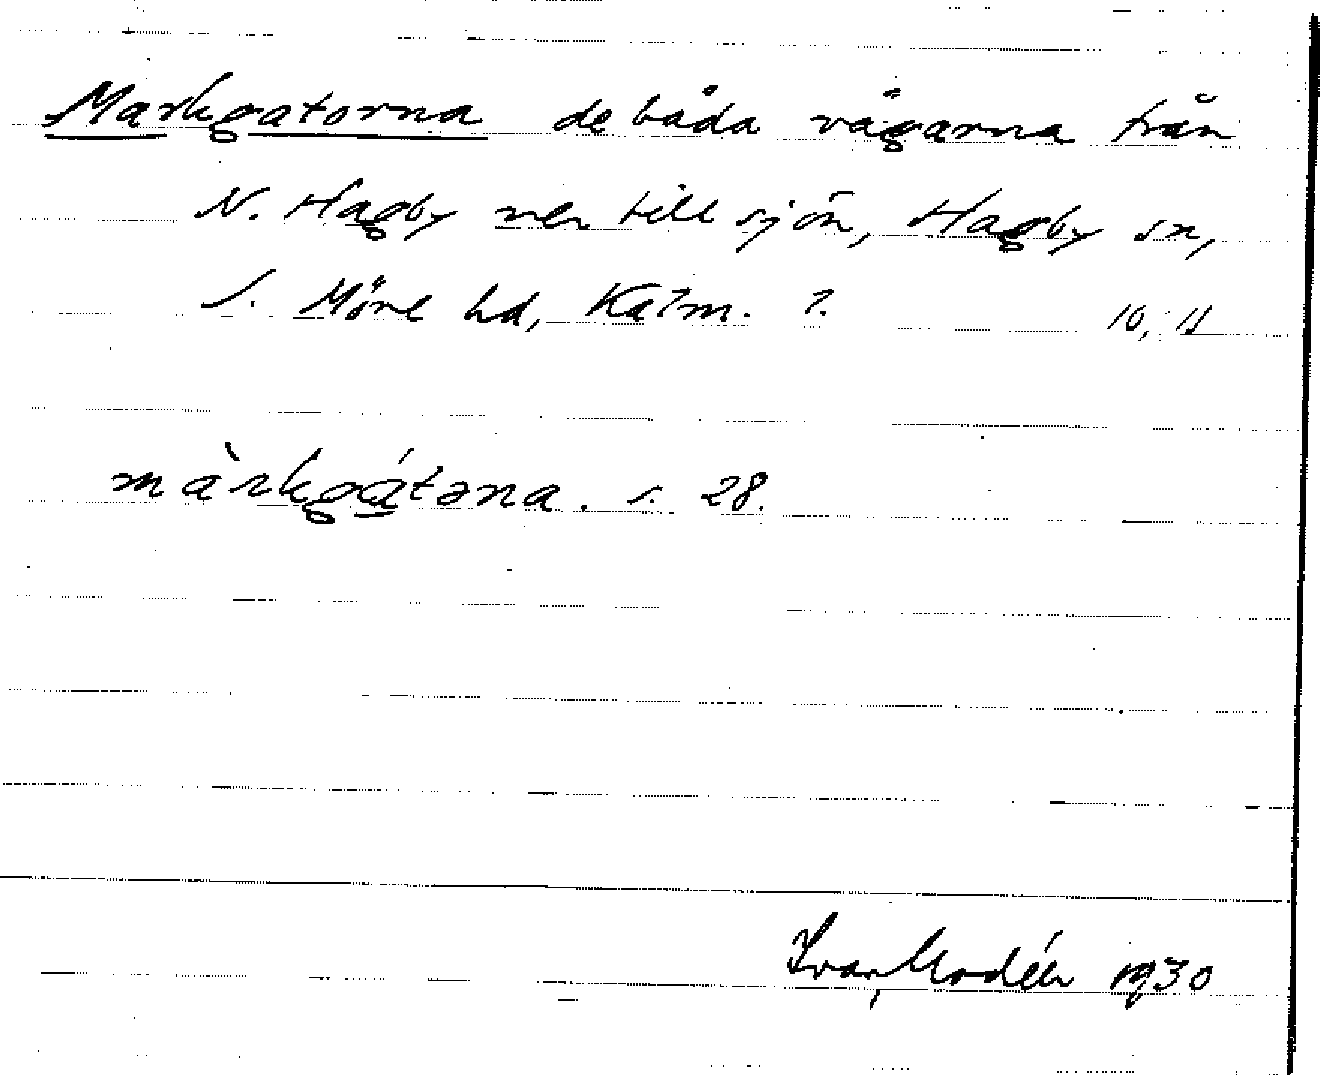 Markgatorna de båda vägarna från
N. Hagby ner till sjön, Hagby sn,
S. Möre hd, Kalm. l.
10, 11
màrkgátəna. s. 28.
Ivar Modéer 1930